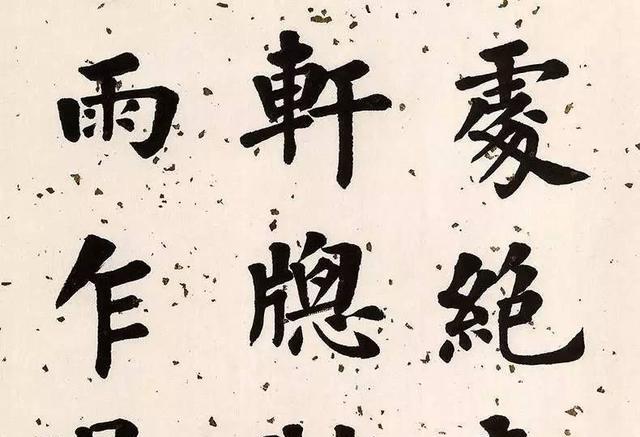 處絕
軒牕
雨乍